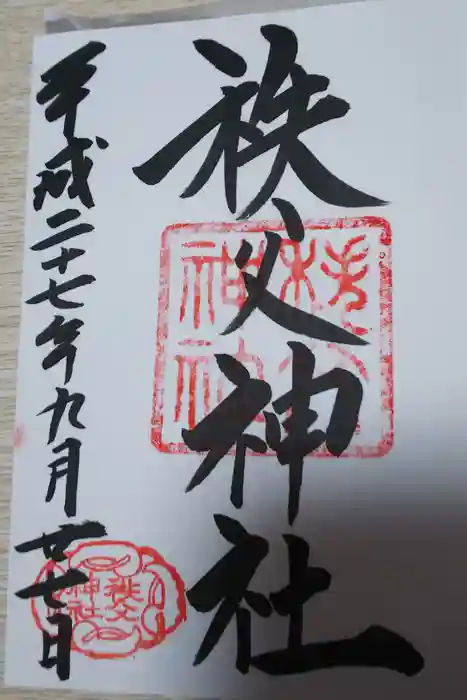 秩父神社
平成二十七年九月廿七日
秩父
神社
秩父
神社